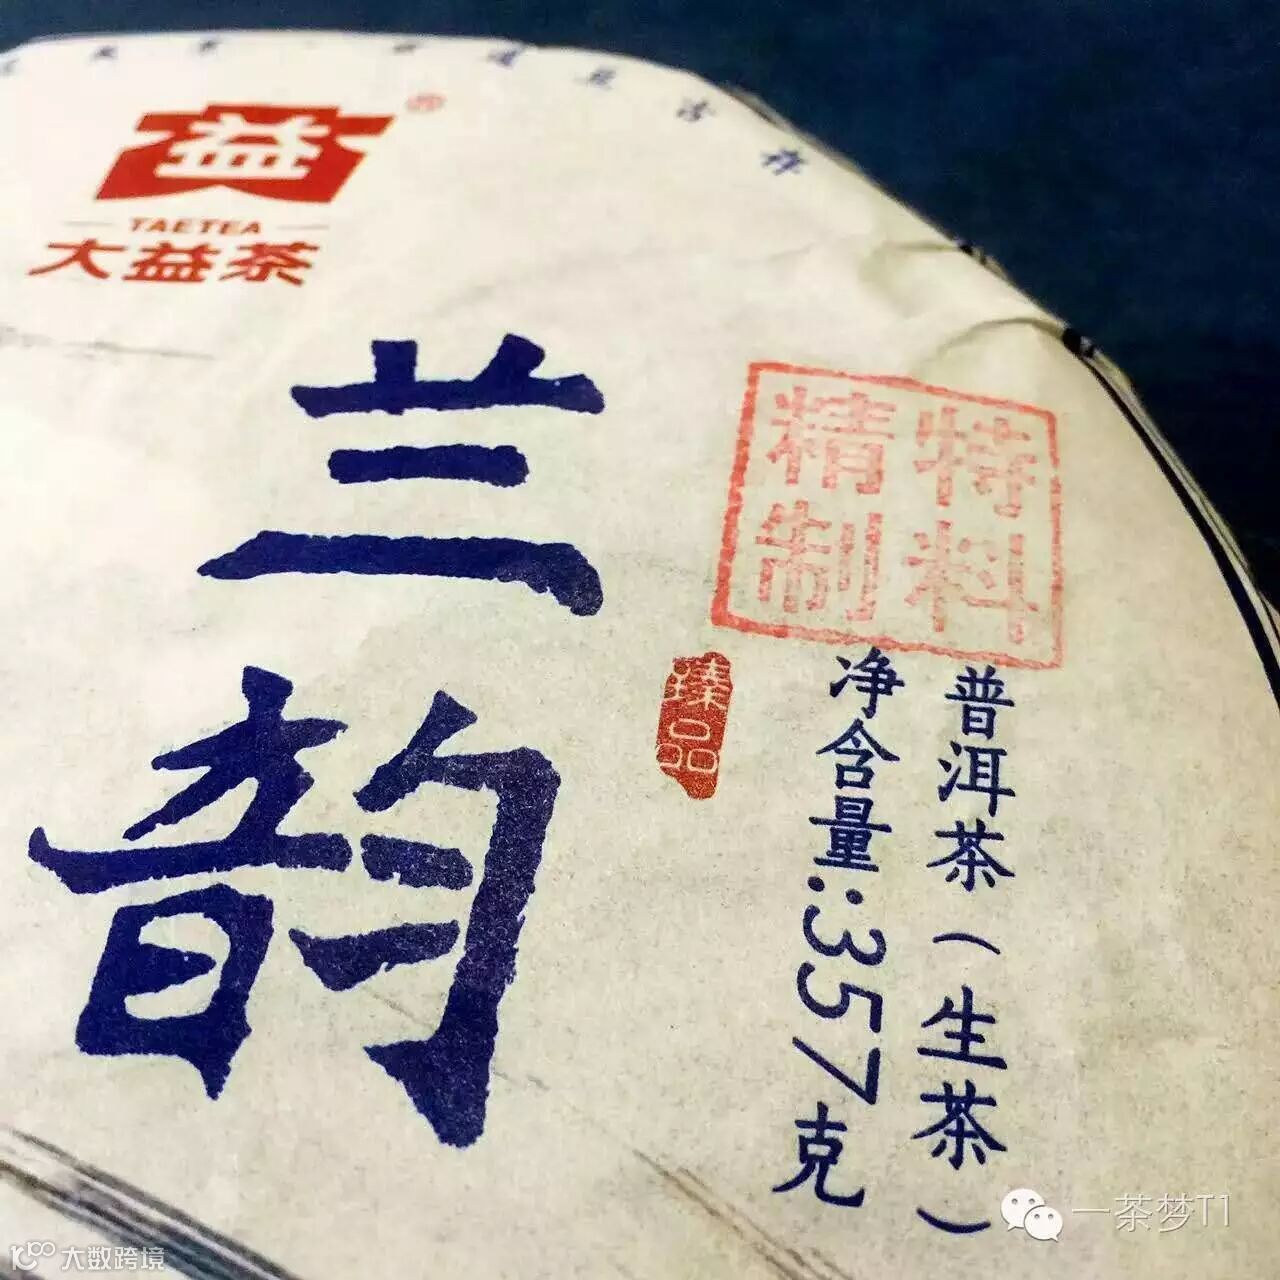 益®
TAETEA
大益茶
兰韵
特料
精制
臻品
普洱茶（生茶）
净含量:357克
一茶梦T1
大数跨境